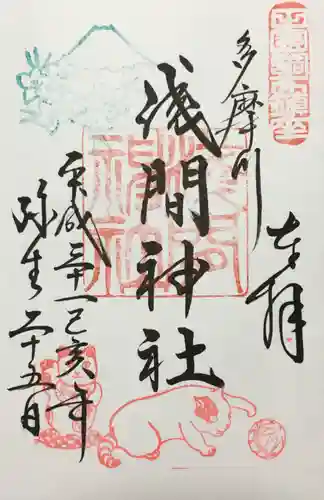 奉拝
多摩川
浅間神社
平成三十一己亥年
弥生二十五日